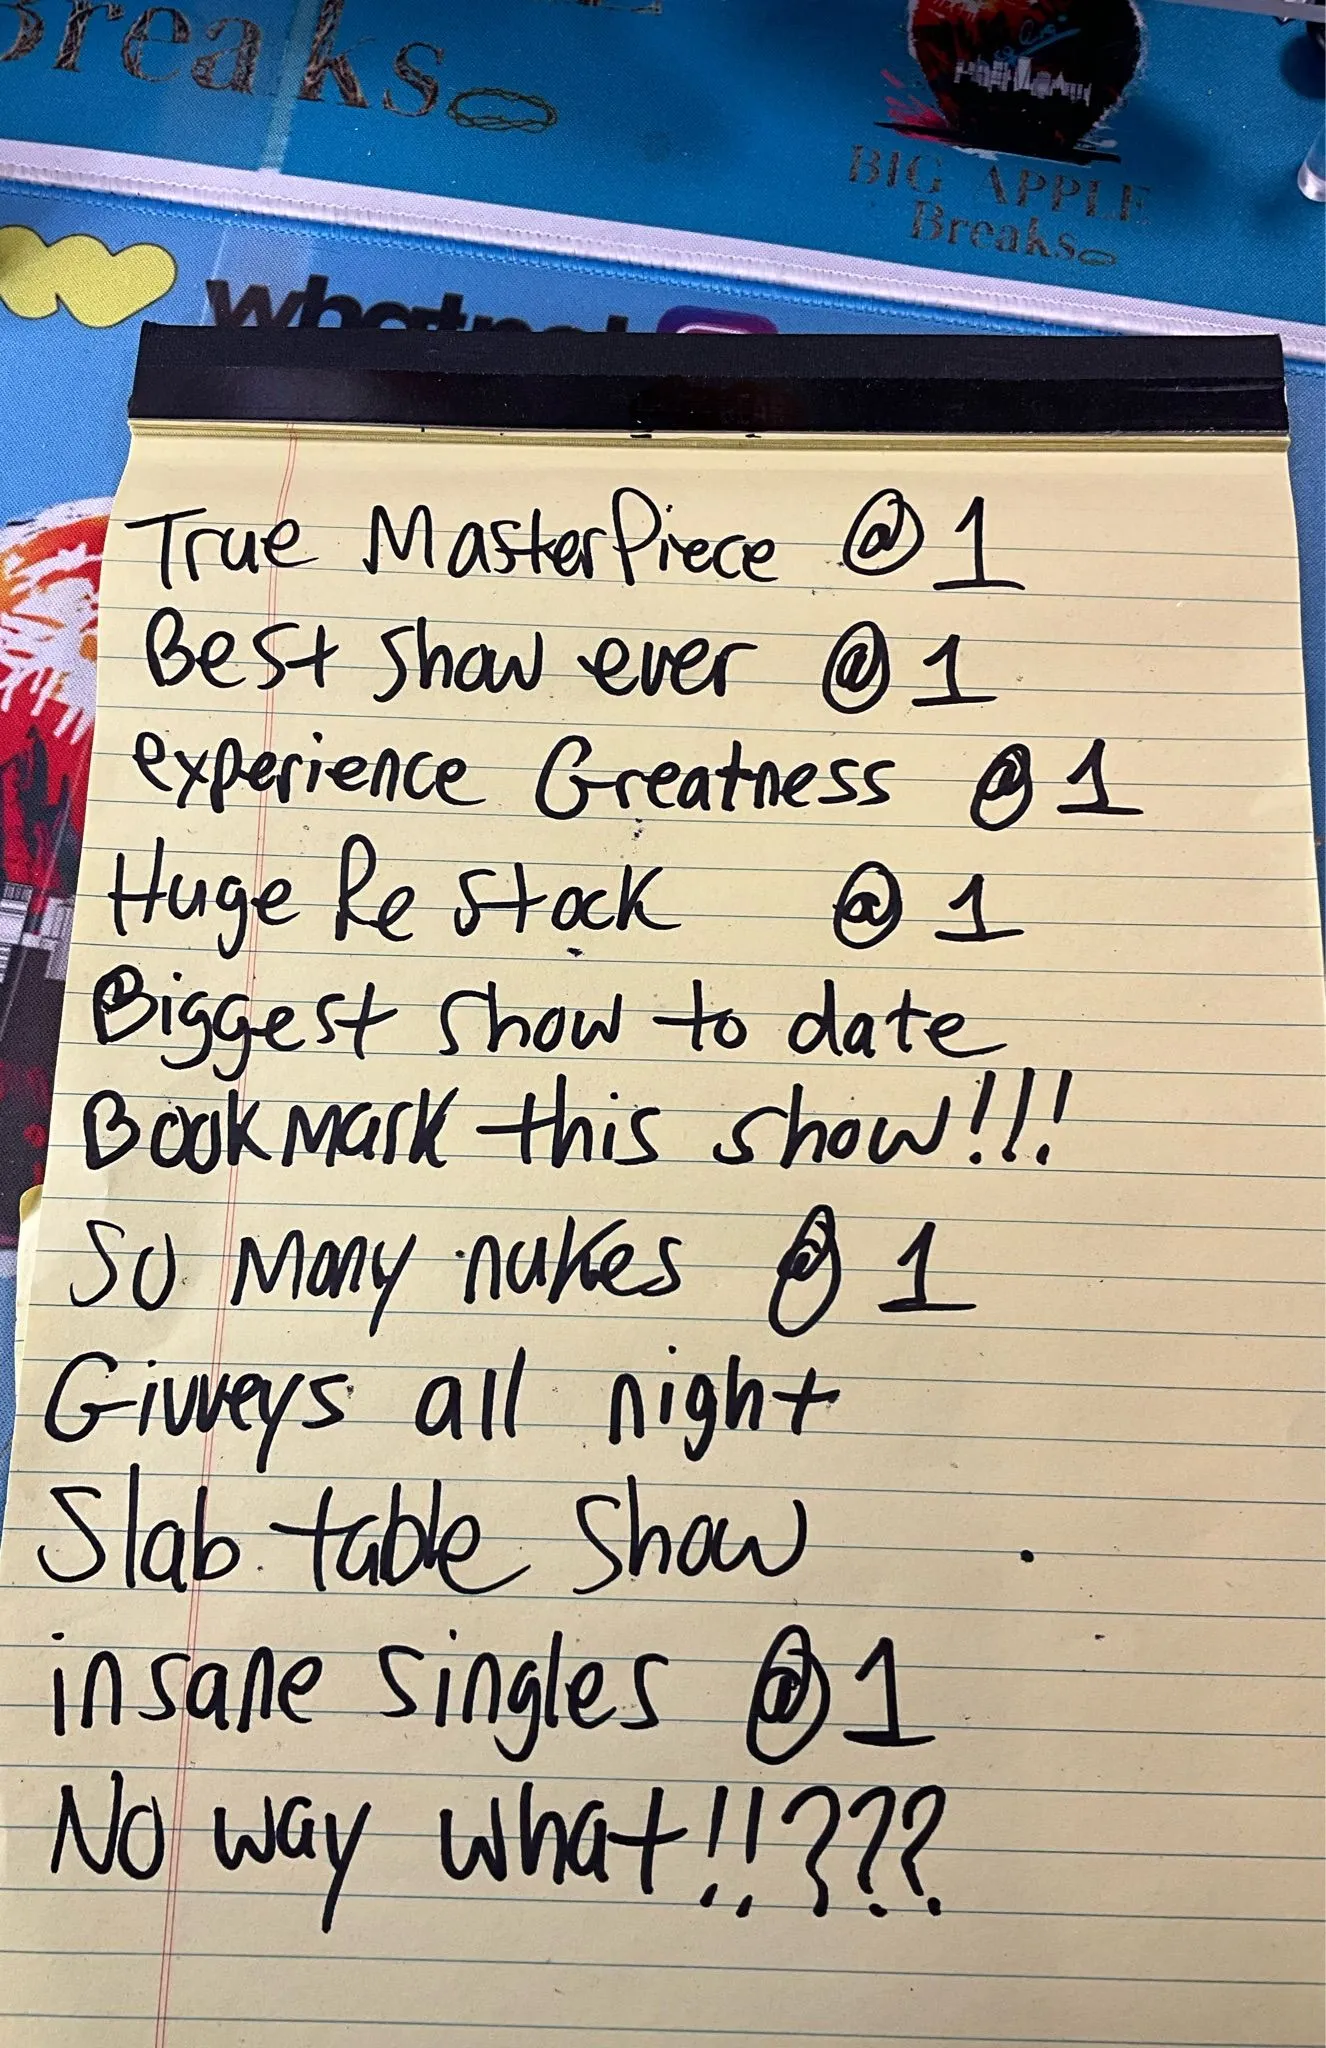 Breaks
BIG APPLE
Breaks
whatnot
True MasterPiece @ 1
Best show ever @ 1
experience Greatness @ 1
Huge Re Stock @ 1
Biggest show to date
Bookmark this show!!!
So Many nukes @ 1
Givveys all night
Slab table show
insane singles @ 1
No way what!!???